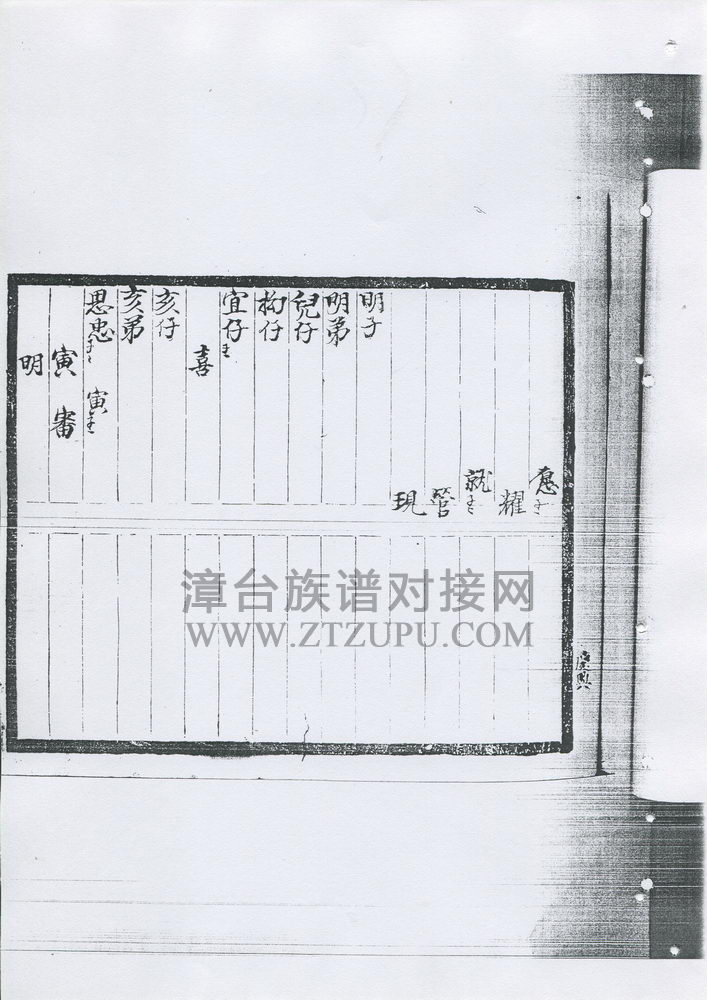 耀
就
管
現
明子
明弟
兒仔
狗仔
宜仔
喜
亥仔
亥弟
思忠 寅
寅 審
明
漳台族谱对接网
WWW.ZTZUPU.COM